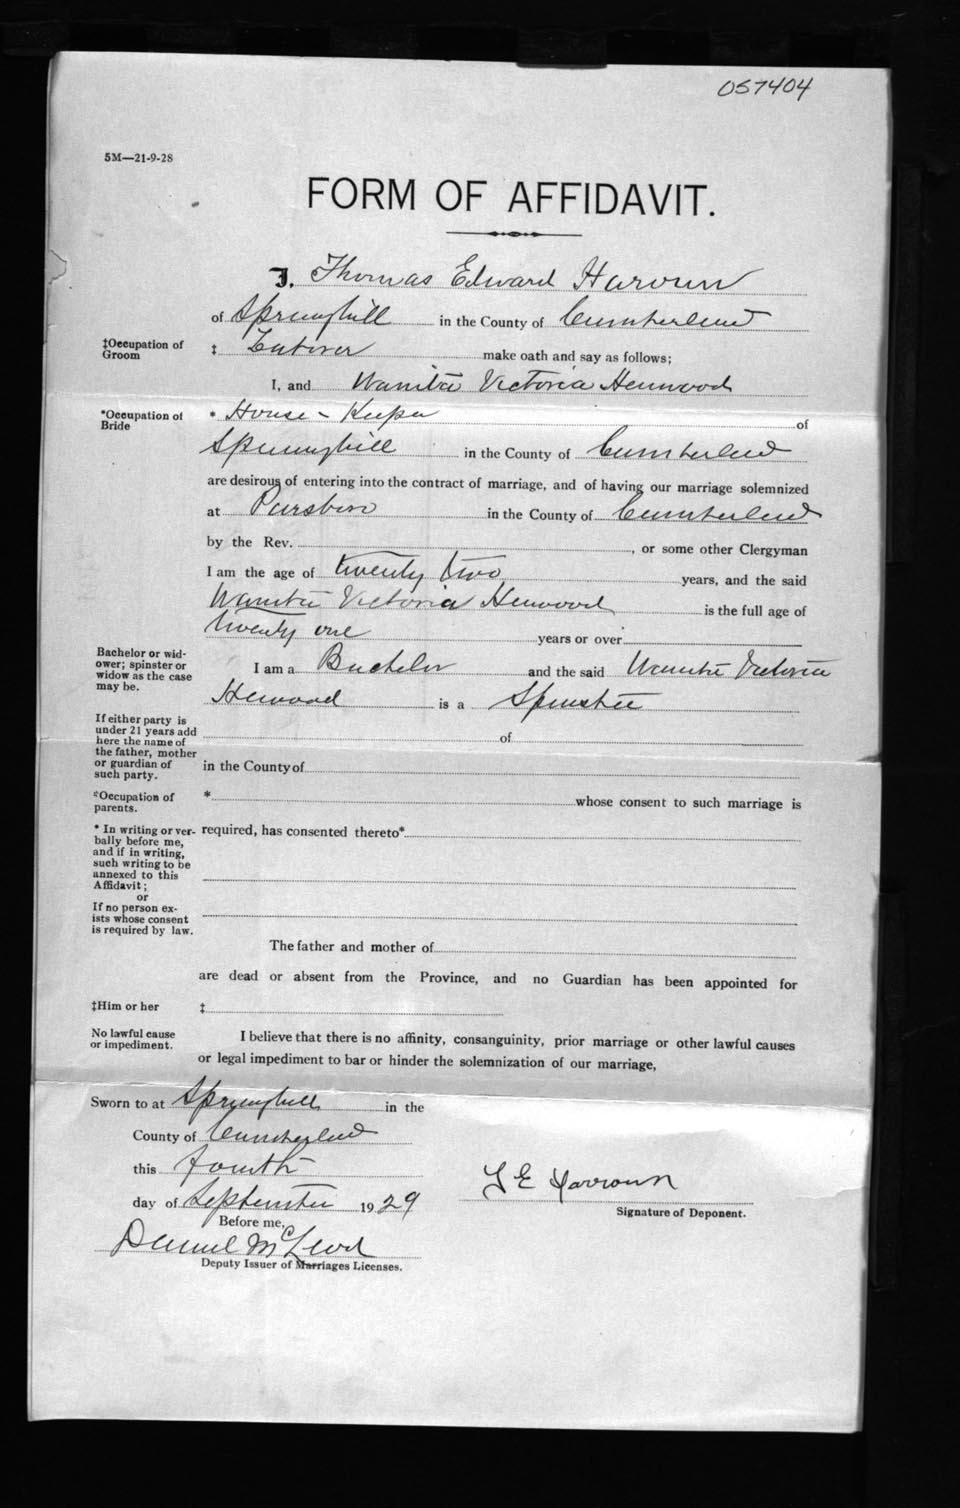 057404
5M—21-9-28
FORM OF AFFIDAVIT.
I, Thomas Edward Haroun
of Springhill in the County of Cumberland
‡Occupation of Groom ‡ Laborer make oath and say as follows;
I, and Wanita Victoria Henwood
*Occupation of Bride * House-Keeper of
Springhill in the County of Cumberland
are desirous of entering into the contract of marriage, and of having our marriage solemnized
at Parsboro in the County of Cumberland
by the Rev. , or some other Clergyman
I am the age of twenty two years, and the said
Wanita Victoria Henwood is the full age of
twenty one years or over
Bachelor or wid-
ower; spinster or
widow as the case
may be.
I am a Bachelor and the said Wanita Victoria
Henwood is a Spinster
If either party is
under 21 years add
here the name of
the father, mother
or guardian of
such party.
of
in the County of
*Occupation of
parents.
* whose consent to such marriage is
* In writing or ver-
bally before me,
and if in writing,
such writing to be
annexed to this
Affidavit;
or
If no person ex-
ists whose consent
is required by law.
required, has consented thereto*
The father and mother of
are dead or absent from the Province, and no Guardian has been appointed for
‡Him or her ‡
No lawful cause
or impediment.
I believe that there is no affinity, consanguinity, prior marriage or other lawful causes
or legal impediment to bar or hinder the solemnization of our marriage,
Sworn to at Springhill in the
County of Cumberland
this fourth
day of September 1929
Before me,
Daniel McLeod
Deputy Issuer of Marriages Licenses.
T E Harroun
Signature of Deponent.